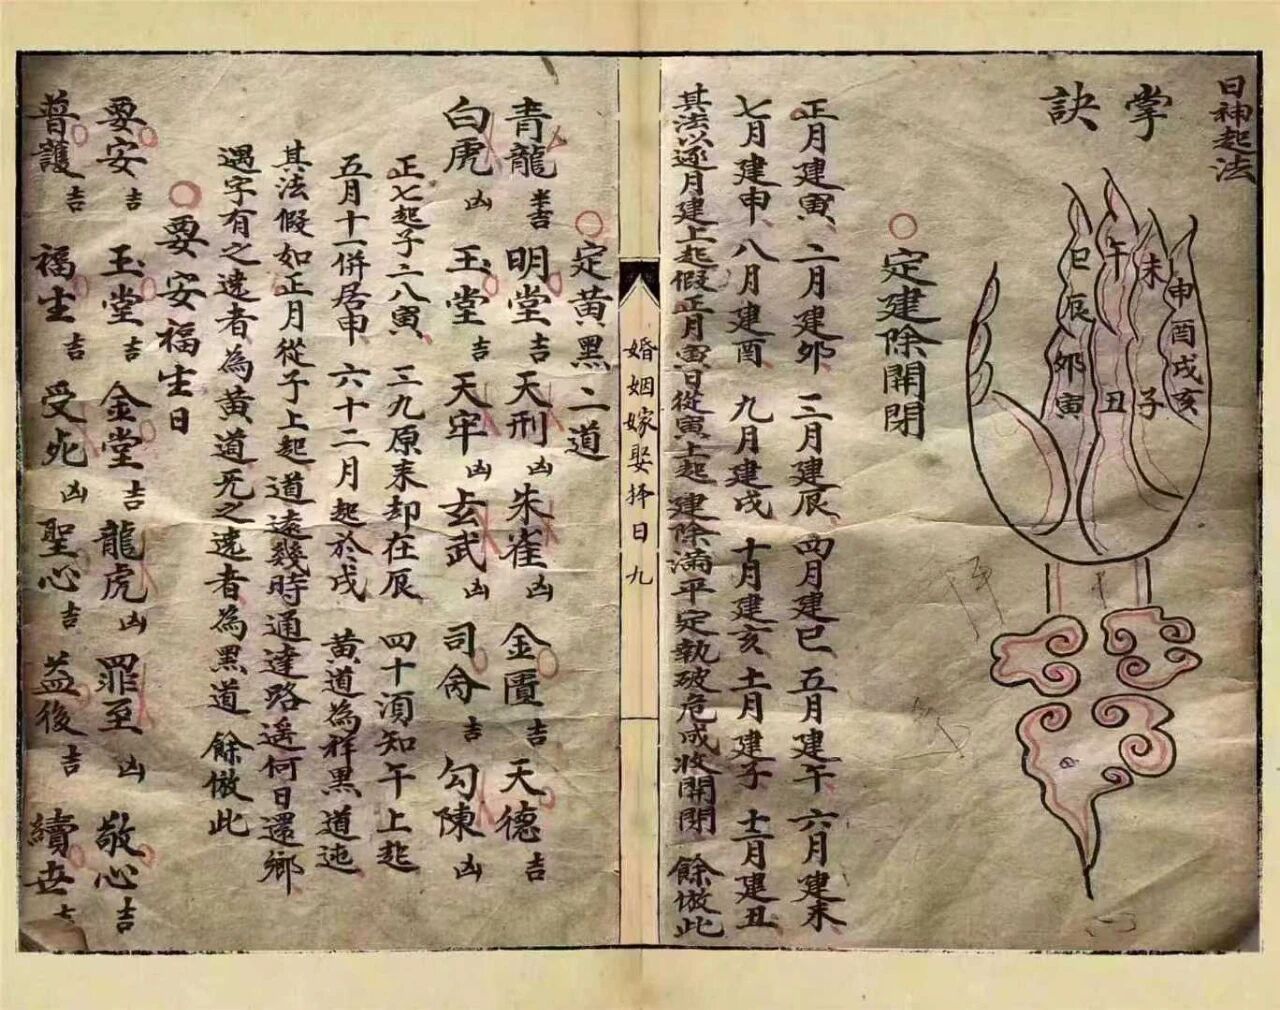 日神起法
掌訣
申酉戌亥
未
子
午
丑
巳辰卯寅
定建除開閉
正月建寅 二月建卯 三月建辰 四月建巳 五月建午 六月建未
七月建申 八月建酉 九月建戌 十月建亥 十一月建子 十二月建丑
其法以逐月建上起假正月寅日從寅上起 建除滿平定執破危成收開閉 餘倣此
婚姻嫁娶择日九
定黃黑二道
青龍吉 明堂吉 天刑凶 朱雀凶 金匱吉 天德吉
白虎凶 玉堂吉 天牢凶 玄武凶 司命吉 勾陳凶
正七起子二八寅 三九原来却在辰 四十須知午上起
五月十一併居申 六十二月起於戌 黃道為祥黑道迍
其法假如正月從子上起 道遠幾時通達路遙何日還鄉
遇字有之遶者為黃道旡之遶者為黑道 餘倣此
要安福生日
要安吉 玉堂吉 金堂吉 龍虎凶 罪至凶 敬心吉
普護吉 福生吉 受死凶 聖心吉 益後吉 續世吉